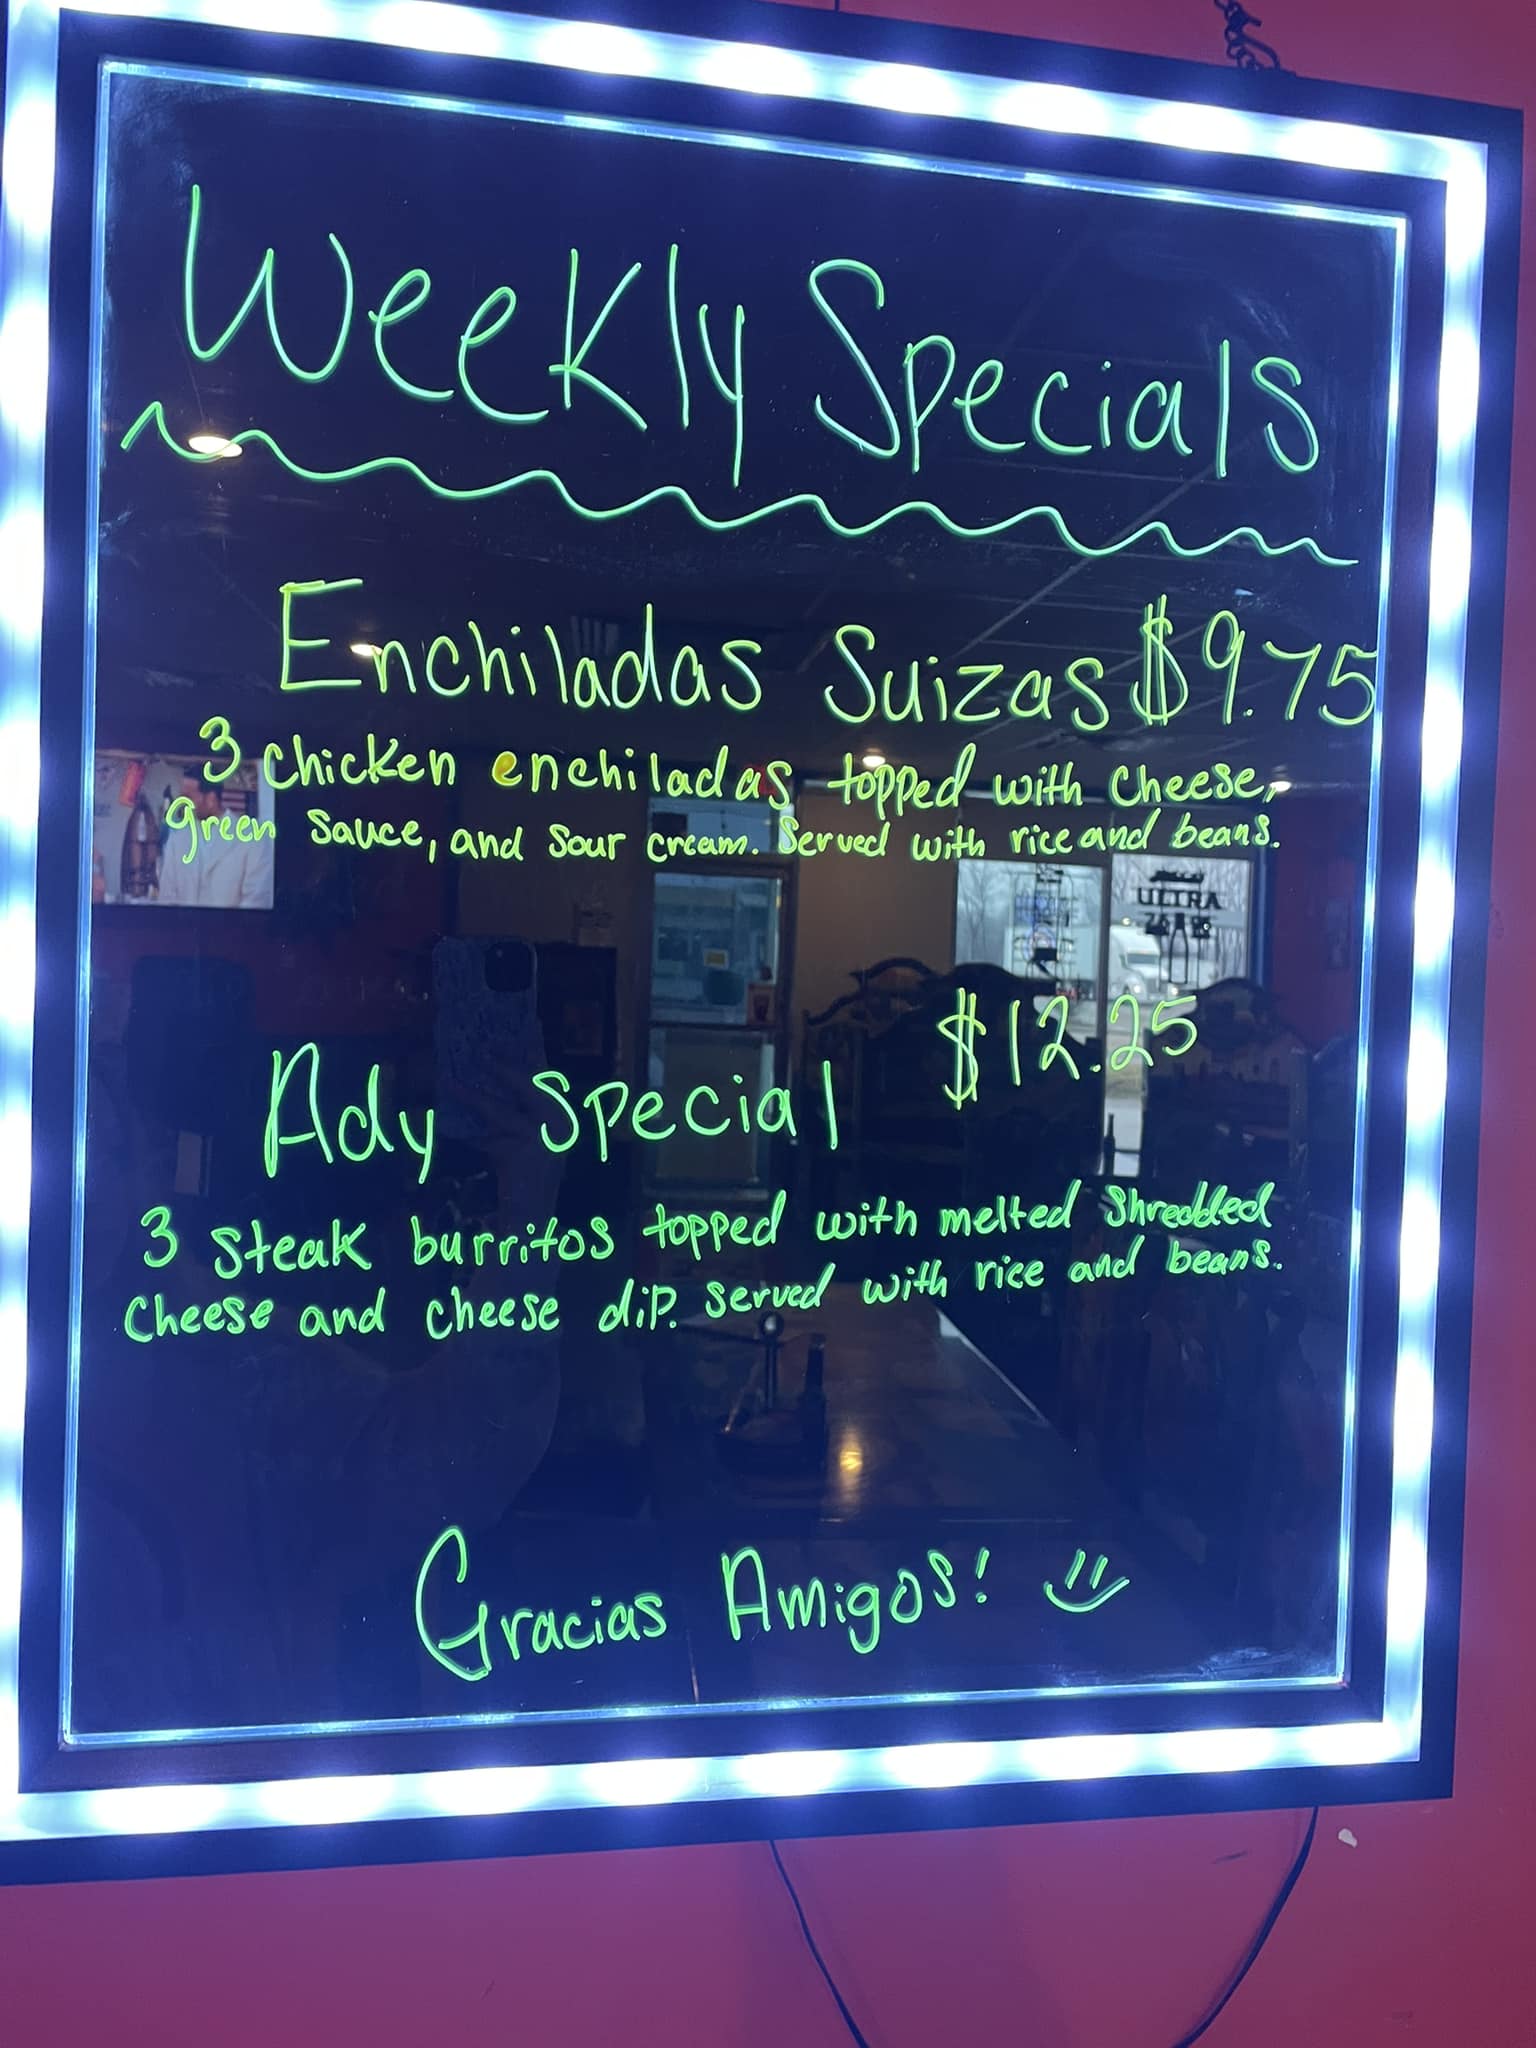 Weekly Specials
Enchiladas Suizas $9.75
3 chicken enchiladas topped with cheese,
green sauce, and sour cream. Served with rice and beans.
ULTRA
$12.25
Ady Special
3 steak burritos topped with melted shredded
cheese and cheese dip. served with rice and beans.
Gracias Amigos!